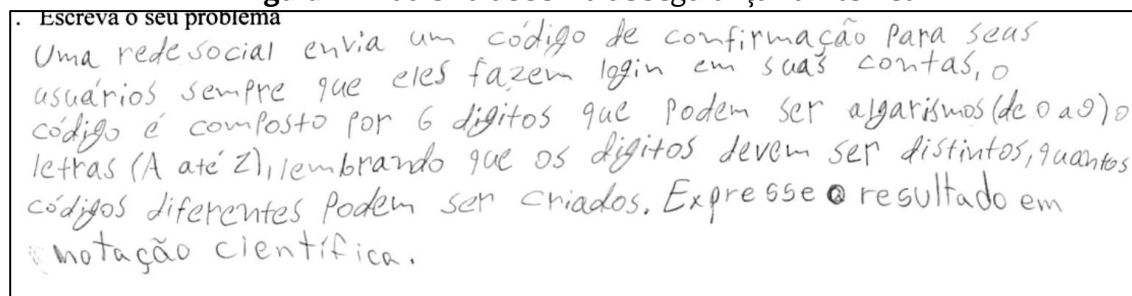 . Escreva o seu problema
Uma rede social envia um código de confirmação para seus
usuários sempre que eles fazem login em suas contas, o
código é composto por 6 dígitos que podem ser algarismos (de 0 a 9) o
letras (A até Z), lembrando que os dígitos devem ser distintos, quantos
códigos diferentes podem ser criados. Expresse o resultado em
notação científica.